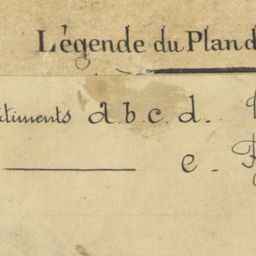 Légende du Plan d
timents a.b.c.d.
e -